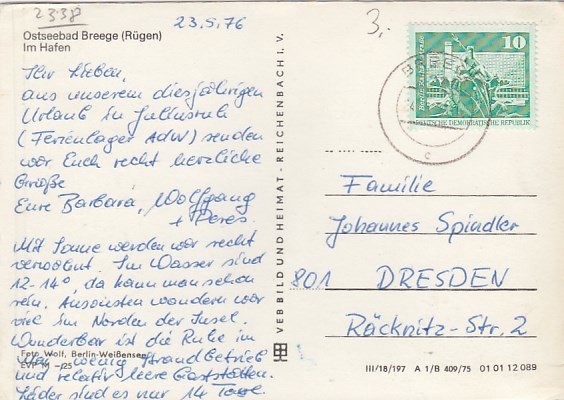 2338
23.5.76
3,-
Ostseebad Breege (Rügen)
Im Hafen
Ihr Lieben,
aus unserem diesjährigen
Urlaub in Juliusruh
(Ferienlager AdW) senden
wir Euch recht herzliche
Grüße
Eure Barbara, Wolfgang
+ Peres.
Mit Sonne werden wir recht
verwöhnt. Im Wasser sind
12-14°, da kann man schon
rein. Ansonsten wandern wir
viel im Norden der Insel.
Wunderbar ist die Ruhe im
Mai, wenig Strandbetrieb
und relativ leere Gaststätten.
Leider sind es nur 14 Tage.
Foto Wolf, Berlin-Weißensee
EVP M -,25
VEB BILD UND HEIMAT · REICHENBACH I. V.
10
DEUTSCHE DEMOKRATISCHE REPUBLIK
BREEGE
c
Familie
Johannes Spindler
801 DRESDEN
Räcknitz-Str. 2
III/18/197 A 1/B 409/75 01 01 12 089